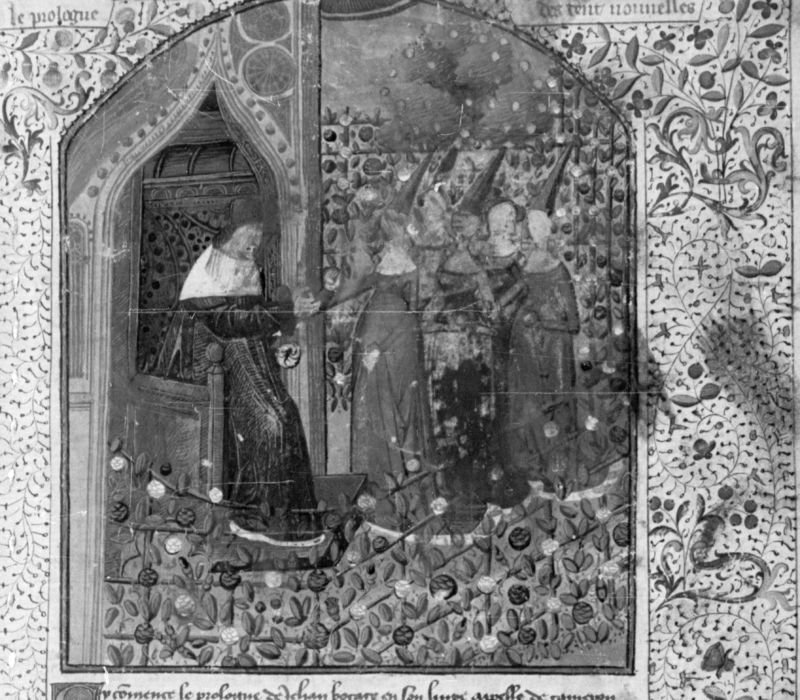 le prologue
des cent nouuelles
Cy cōmence le prologue de Jehan bocace en son liure apelle de cameron